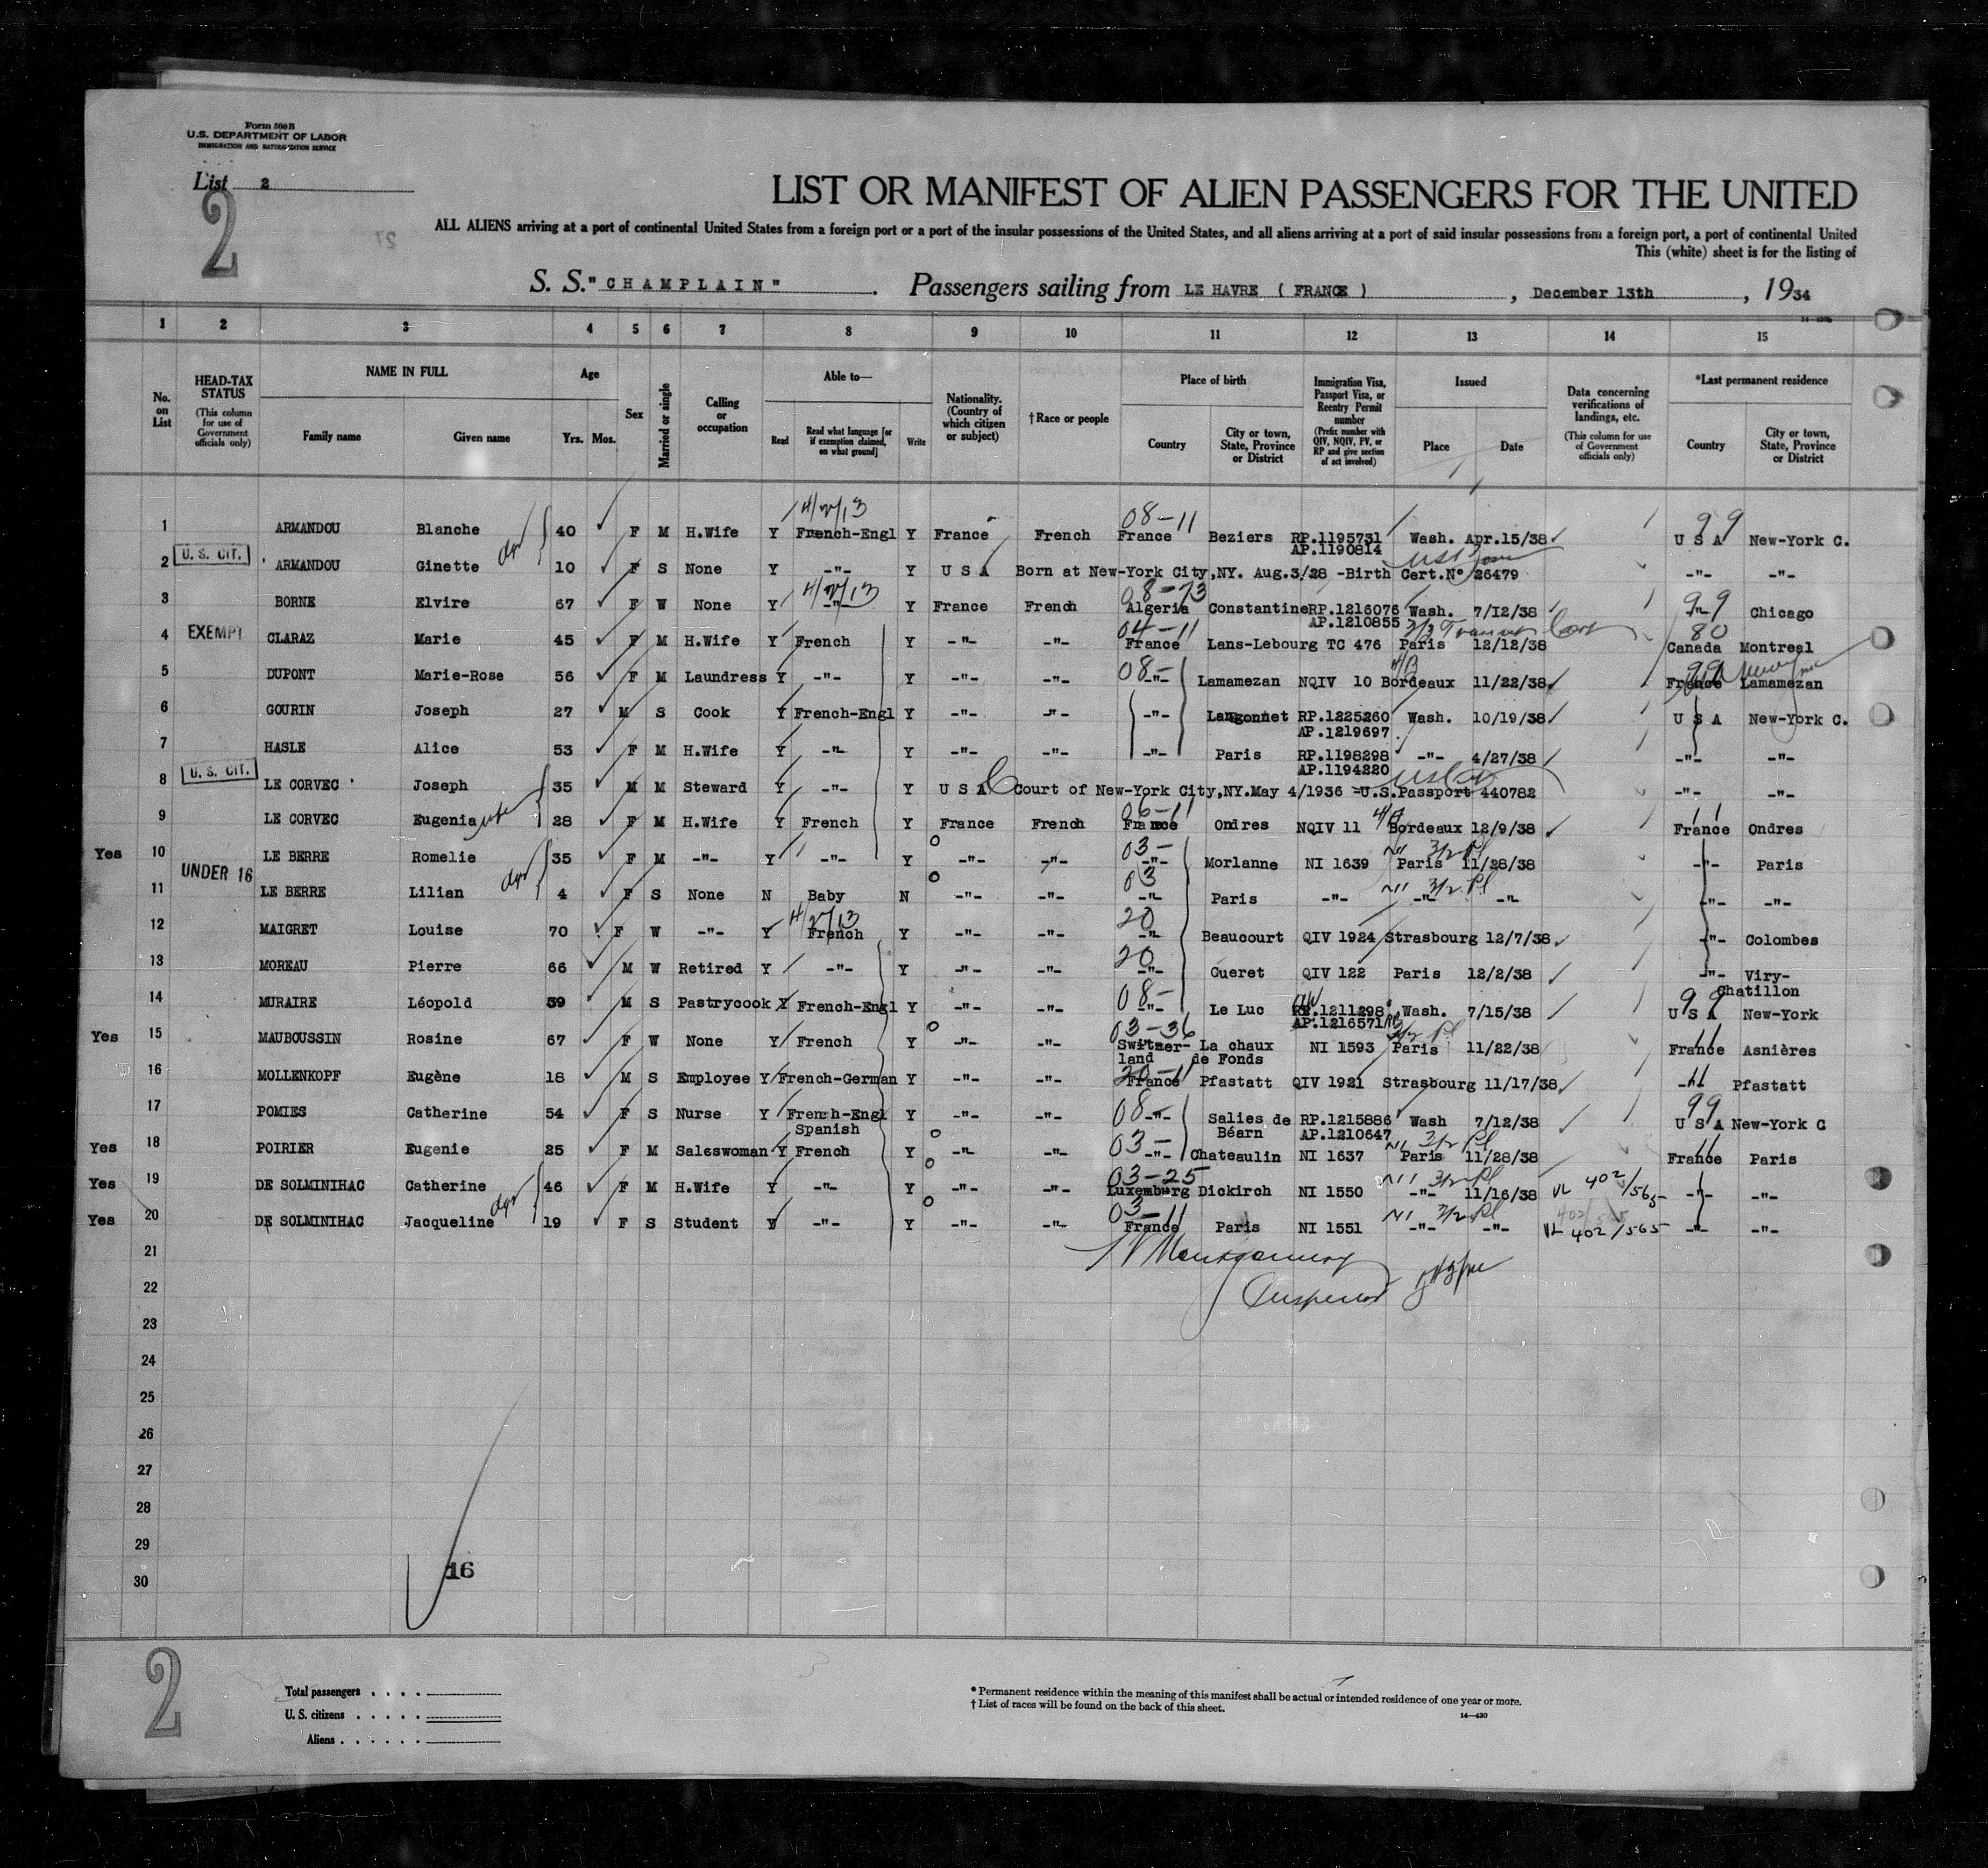 Form 500 B
U.S. DEPARTMENT OF LABOR
IMMIGRATION AND NATURALIZATION SERVICE
List 2
2
27
LIST OR MANIFEST OF ALIEN PASSENGERS FOR THE UNITED
ALL ALIENS arriving at a port of continental United States from a foreign port or a port of the insular possessions of the United States, and all aliens arriving at a port of said insular possessions from a foreign port, a port of continental United
This (white) sheet is for the listing of
S. S. "CHAMPLAIN" . Passengers sailing from LE HAVRE ( FRANCE ) , December 13th , 1934
1 2 3 4 5 6 7 8 9 10 11 12 13 14 15
No. on List
HEAD-TAX STATUS (This column for use of Government officials only)
NAME IN FULL
Family name Given name
Age
Yrs. Mos.
Sex
Married or single
Calling or occupation
Able to—
Read
Read what language [or if exemption claimed, on what ground]
Write
Nationality. (Country of which citizen or subject)
†Race or people
Place of birth
Country
City or town, State, Province or District
Immigration Visa, Passport Visa, or Reentry Permit number
(Prefix number with QIV, NQIV, PV, or RP and give section of act involved)
Issued
Place Date
Data concerning verifications of landings, etc.
(This column for use of Government officials only)
*Last permanent residence
Country
City or town, State, Province or District
4/2/13 08-11 99
1 ARMANDOU Blanche 40 F M H.Wife Y French-Engl Y France French France Beziers RP.1195731 Wash. Apr.15/38 U S A New-York C.
AP.1190814
2 U. S. CIT. ARMANDOU Ginette dgr 10 F S None Y -"- Y U S A Born at New-York City,NY. Aug.3/28 -Birth Cert.N° 26479 -"- -"-
4/2/13 08-73 99
3 BORNE Elvire 67 F W None Y -"- Y France French Algeria Constantine RP.1216076 Wash. 7/12/38 -"- Chicago
AP.1210855
04-11 3/3 Transit 80
4 EXEMPT CLARAZ Marie 45 F M H.Wife Y French Y -"- -"- France Lans-Lebourg TC 476 Paris 12/12/38 Canada Montreal
08- 4/3 99
5 DUPONT Marie-Rose 56 F M Laundress Y -"- Y -"- -"- -"- Lamamezan NQIV 10 Bordeaux 11/22/38 France Lamamezan
6 GOURIN Joseph 27 M S Cook Y French-Engl Y -"- -"- -"- Langonnet RP.1225260 Wash. 10/19/38 U S A New-York C.
AP.1219697
7 HASLE Alice 53 F M H.Wife Y -"- Y -"- -"- -"- Paris RP.1198298 -"- 4/27/38 -"- -"-
AP.1194220
8 U. S. CIT. LE CORVEC Joseph 35 M M Steward Y -"- Y U S A Court of New-York City,NY.May 4/1936 -U.S.Passport 440782 -"- -"-
06-11 11
9 LE CORVEC Eugenia wife 28 F M H.Wife Y French Y France French France Ondres NQIV 11 Bordeaux 12/9/38 France Ondres
03- NI 3/2 Pl
Yes 10 LE BERRE Romelie 35 F M -"- Y -"- Y -"- -"- -"- Morlanne NI 1639 Paris 11/28/38 -"- Paris
03 NI 3/2 Pl
11 UNDER 16 LE BERRE Lilian dgr 4 F S None N Baby N -"- -"- -"- Paris -"- -"- -"- -"- -"-
4/2/13 20
12 MAIGRET Louise 70 F W -"- Y French Y -"- -"- -"- Beaucourt QIV 1924 Strasbourg 12/7/38 -"- Colombes
20
13 MOREAU Pierre 66 M W Retired Y -"- Y -"- -"- -"- Gueret QIV 122 Paris 12/2/38 -"- Viry-Chatillon
08- 99
14 MURAIRE Léopold 39 M S Pastrycook Y French-Engl Y -"- -"- -"- Le Luc RP.1211298 Wash. 7/15/38 U S A New-York
AP.1216571
03-36 3/2 Pl 11
Yes 15 MAUBOUSSIN Rosine 67 F W None Y French Y -"- -"- Switzerland La chaux de Fonds NI 1593 Paris 11/22/38 France Asnières
20-11 11
16 MOLLENKOPF Eugène 18 M S Employee Y French-German Y -"- -"- France Pfastatt QIV 1921 Strasbourg 11/17/38 -"- Pfastatt
08- 99
17 POMIES Catherine 54 F S Nurse Y French-Engl Spanish Y -"- -"- -"- Salies de Béarn RP.1215886 Wash 7/12/38 U S A New-York C
AP.1210647
03- NI 3/2 Pl 11
Yes 18 POIRIER Eugenie 25 F M Saleswoman Y French Y -"- -"- -"- Chateaulin NI 1637 Paris 11/28/38 France Paris
03-25 NI 3/2 Pl
Yes 19 DE SOLMINIHAC Catherine 46 F M H.Wife Y -"- Y -"- -"- Luxemburg Dickirch NI 1550 -"- 11/16/38 VL 402/565 -"- -"-
03-11 NI 3/2 Pl
Yes 20 DE SOLMINIHAC Jacqueline dgr 19 F S Student Y -"- Y -"- -"- France Paris NI 1551 -"- -"- VL 402/565 -"- -"-
21
Montgomery
22
Inspector
23
24
25
26
27
28
29
16
30
2
Total passengers . . . .
U. S. citizens . . . . .
Aliens . . . . . .
* Permanent residence within the meaning of this manifest shall be actual or intended residence of one year or more.
† List of races will be found on the back of this sheet.
14—430